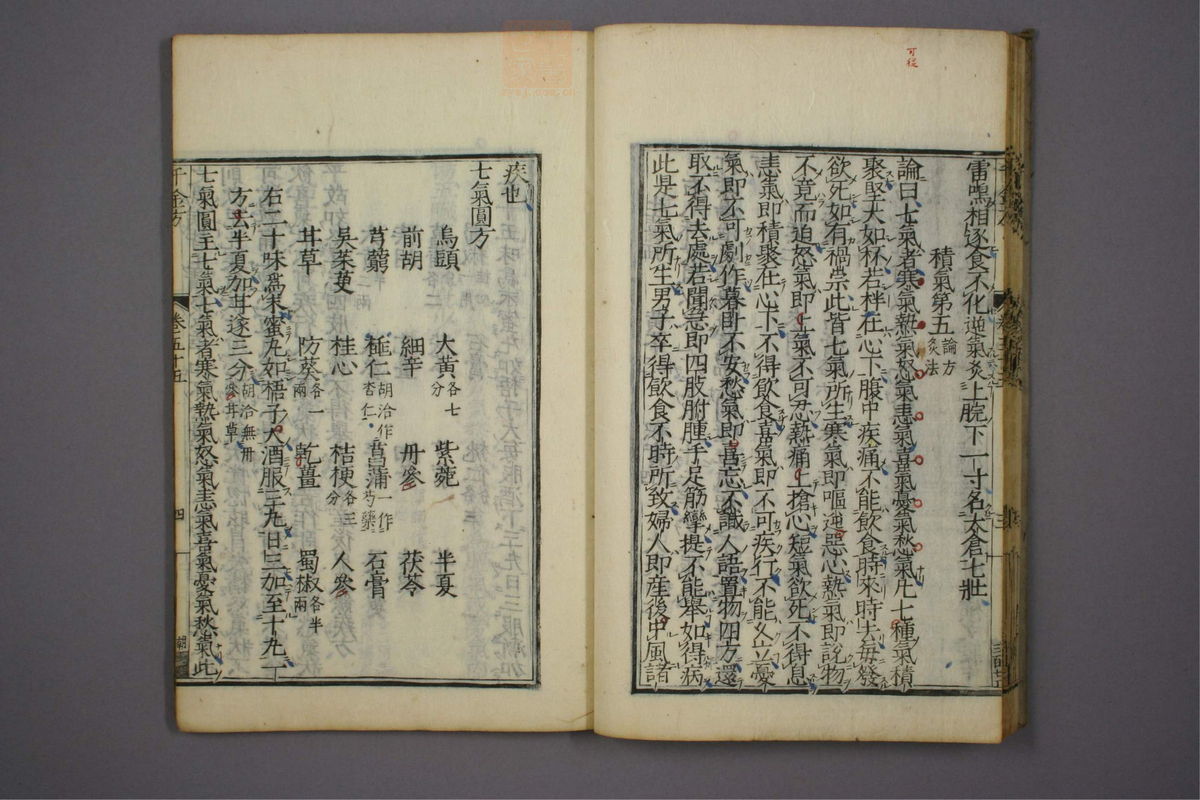 可從
雷鳴相逐食不化逆氣灸上脘下一寸名太倉七壯
積氣第五 論 方 灸法
論曰七氣者寒氣熱氣怒氣恚氣喜氣憂氣愁氣凡七種氣積
聚堅大如杯若柈在心下腹中疾痛不能飲食時來時去每發
欲死如有禍祟此皆七氣所生寒氣即嘔逆惡心熱氣即說物
不竟而迫怒氣即上氣不可忍熱痛上搶心短氣欲死不得息
恚氣即積聚在心下不得飲食喜氣即不可疾行不能久立憂
氣即不可劇作暮臥不安愁氣即喜忘不識人語置物四方還
取不得去處若聞急即四肢胕腫手足筋攣捉不能舉如得病
此是七氣所生男子卒得飲食不時所致婦人即產後中風諸
疾也
七氣圓方
烏頭 大黃各七分 紫菀 半夏
前胡 細辛 丹參 茯苓
芎藭 㮈仁胡洽作杏仁 菖蒲一作芍藥 石膏
吳茱萸 桂心 桔梗各三分 人參
甘草 防葵各一兩 乾薑 蜀椒各半兩
右二十味為末蜜丸如梧子大酒服三丸日三加至十九一
方去半夏加甘遂三分胡洽無丹參甘草
七氣圓主七氣七氣者寒氣熱氣怒氣恚氣喜氣憂氣愁氣此
千金方 卷五十五 四